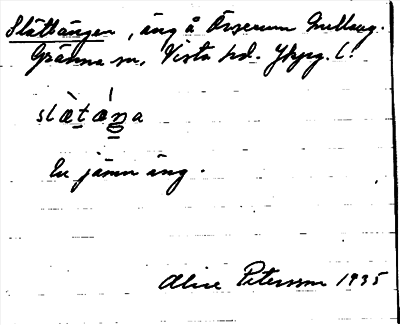 Slättängen, äng å Örserum Mellang.
Gränna sn, Vista hd. Jkpg. l.
slæ̀tǽŋa
En jämn äng.
Alice Petersson 1935